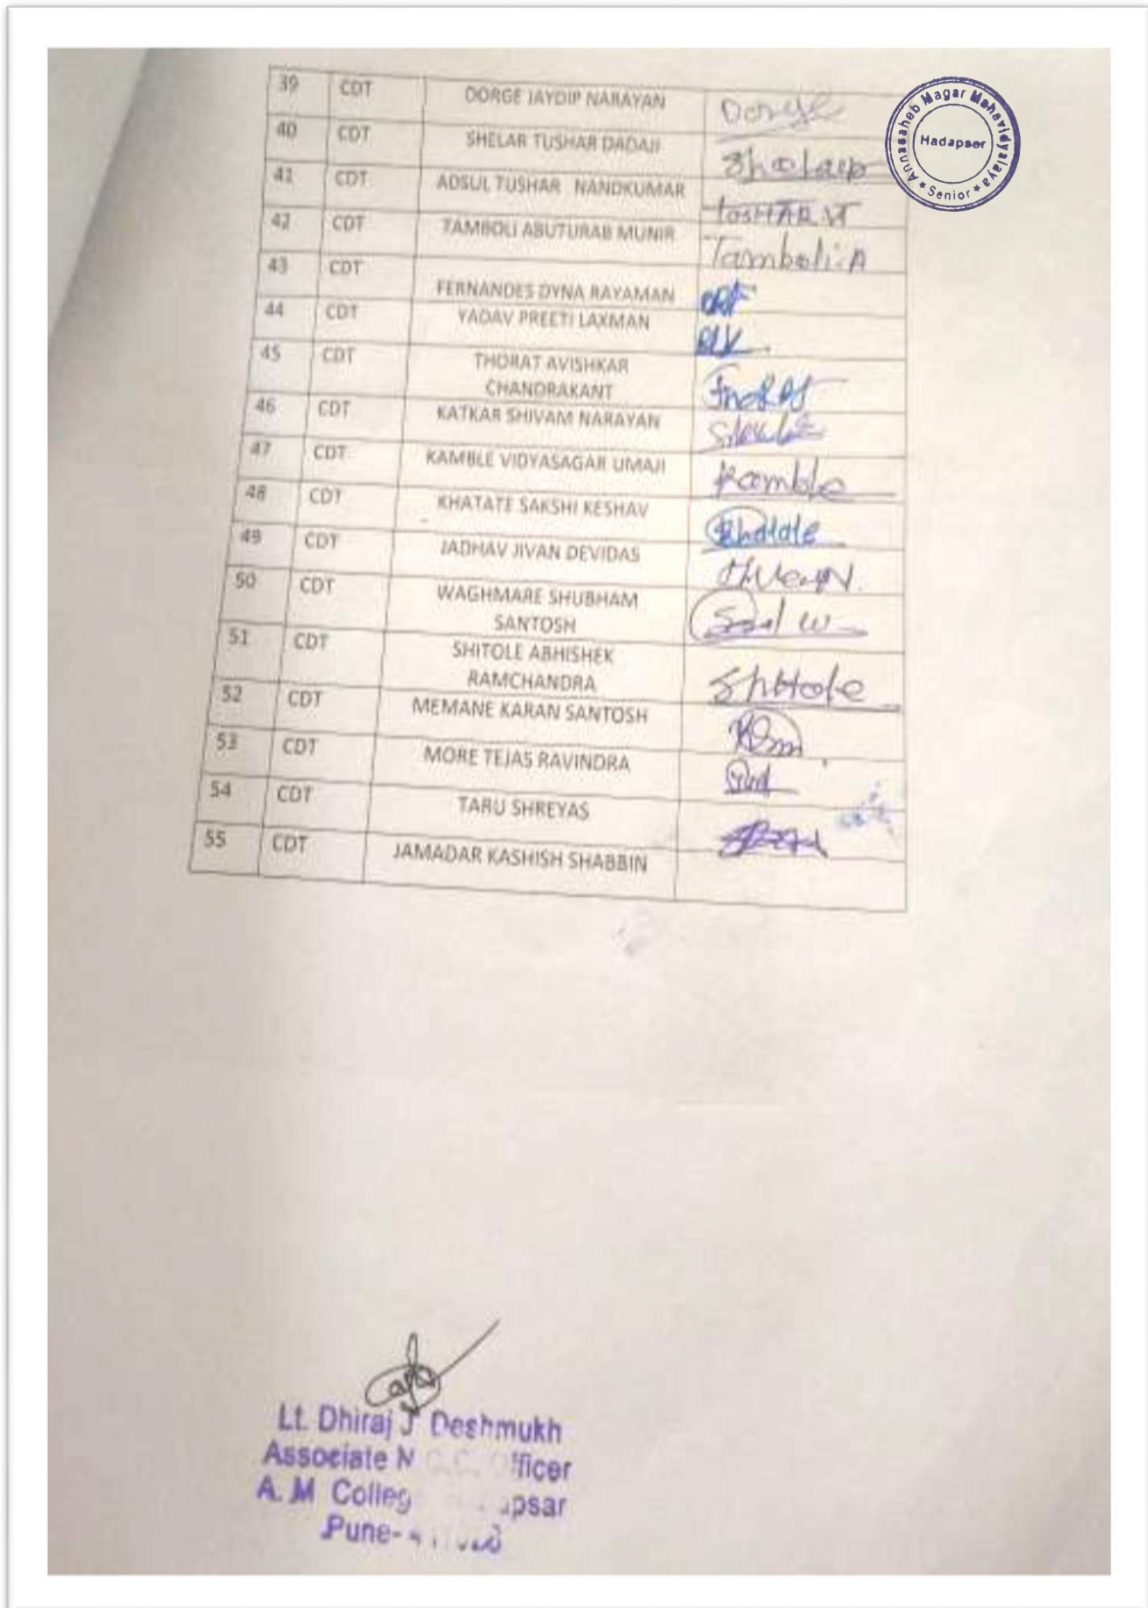 39 CDT DORGE JAYDIP NARAYAN Dorge
40 CDT SHELAR TUSHAR DADAJI
41 CDT ADSUL TUSHAR NANDKUMAR
42 CDT TAMBOLI ABUTURAB MUNIR Tamboli.A
43 CDT FERNANDES DYNA RAYAMAN DRF
44 CDT YADAV PREETI LAXMAN
45 CDT THORAT AVISHKAR
CHANDRAKANT
46 CDT KATKAR SHIVAM NARAYAN
47 CDT KAMBLE VIDYASAGAR UMAJI Kamble
48 CDT KHATATE SAKSHI KESHAV Khatate
49 CDT JADHAV JIVAN DEVIDAS
50 CDT WAGHMARE SHUBHAM
SANTOSH
51 CDT SHITOLE ABHISHEK
RAMCHANDRA Shitole
52 CDT MEMANE KARAN SANTOSH
53 CDT MORE TEJAS RAVINDRA
54 CDT TARU SHREYAS
55 CDT JAMADAR KASHISH SHABBIN
Annasaheb Magar Mahavidyalaya
Hadapser
★ Senior ★
Lt. Dhiraj J Deshmukh
Associate N.C.C. Officer
A. M Colleg apsar
Pune-